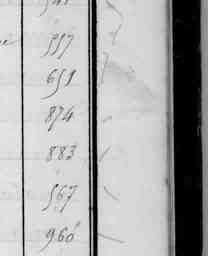 557
651
874
883
567
960